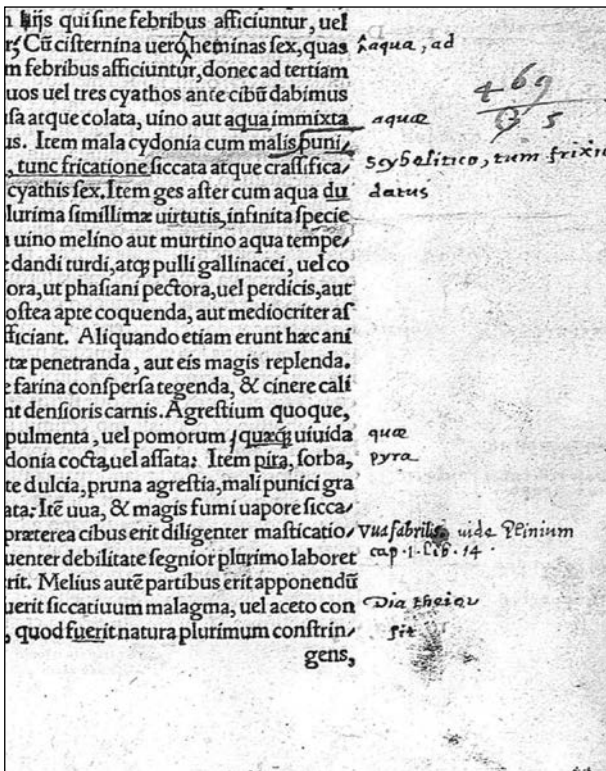 hijs qui sine febribus afficiuntur, uel
Cū cisternina uero heminas sex, quas ‸aqua, ad
m febribus afficiuntur, donec ad tertiam
uos uel tres cyathos ante cibū dabimus
469
5
sa atque colata, uino aut aqua immixta aquæ
us. Item mala cydonia cum malis puni/
, tunc fricatione siccata atque crassifica/ scybelitico, tum frixis
cyathis sex. Item ges aster cum aqua du datus
lurima simillimæ uirtutis, infinita specie
uino melino aut murtino aqua tempe/
dandi turdi, atq; pulli gallinacei, uel co
ora, ut phasiani pectora, uel perdicis, aut
ostea apte coquenda, aut mediocriter as
fficiant. Aliquando etiam erunt hæc ani
tæ penetranda, aut eis magis replenda.
farina conspersa tegenda, & cinere cali
nt densioris carnis. Agrestium quoque,
pulmenta, uel pomorum quæq; uiuida quæ
donia cocta, uel assata: Item pira, sorba, pyra
te dulcia, pruna agrestia, mali punici gra
ata: Itē uua, & magis fumi uapore sicca/
præterea cibus erit diligenter masticatio/ Vua fabrilis uide Plinium
uenter debilitate segnior plurimo laboret cap. 1. lib. 14.
rit. Melius autē partibus erit apponendū
uerit siccatiuum malagma, uel aceto con Dia theiou
, quod fuerit natura plurimum constrin/ sit
gens,